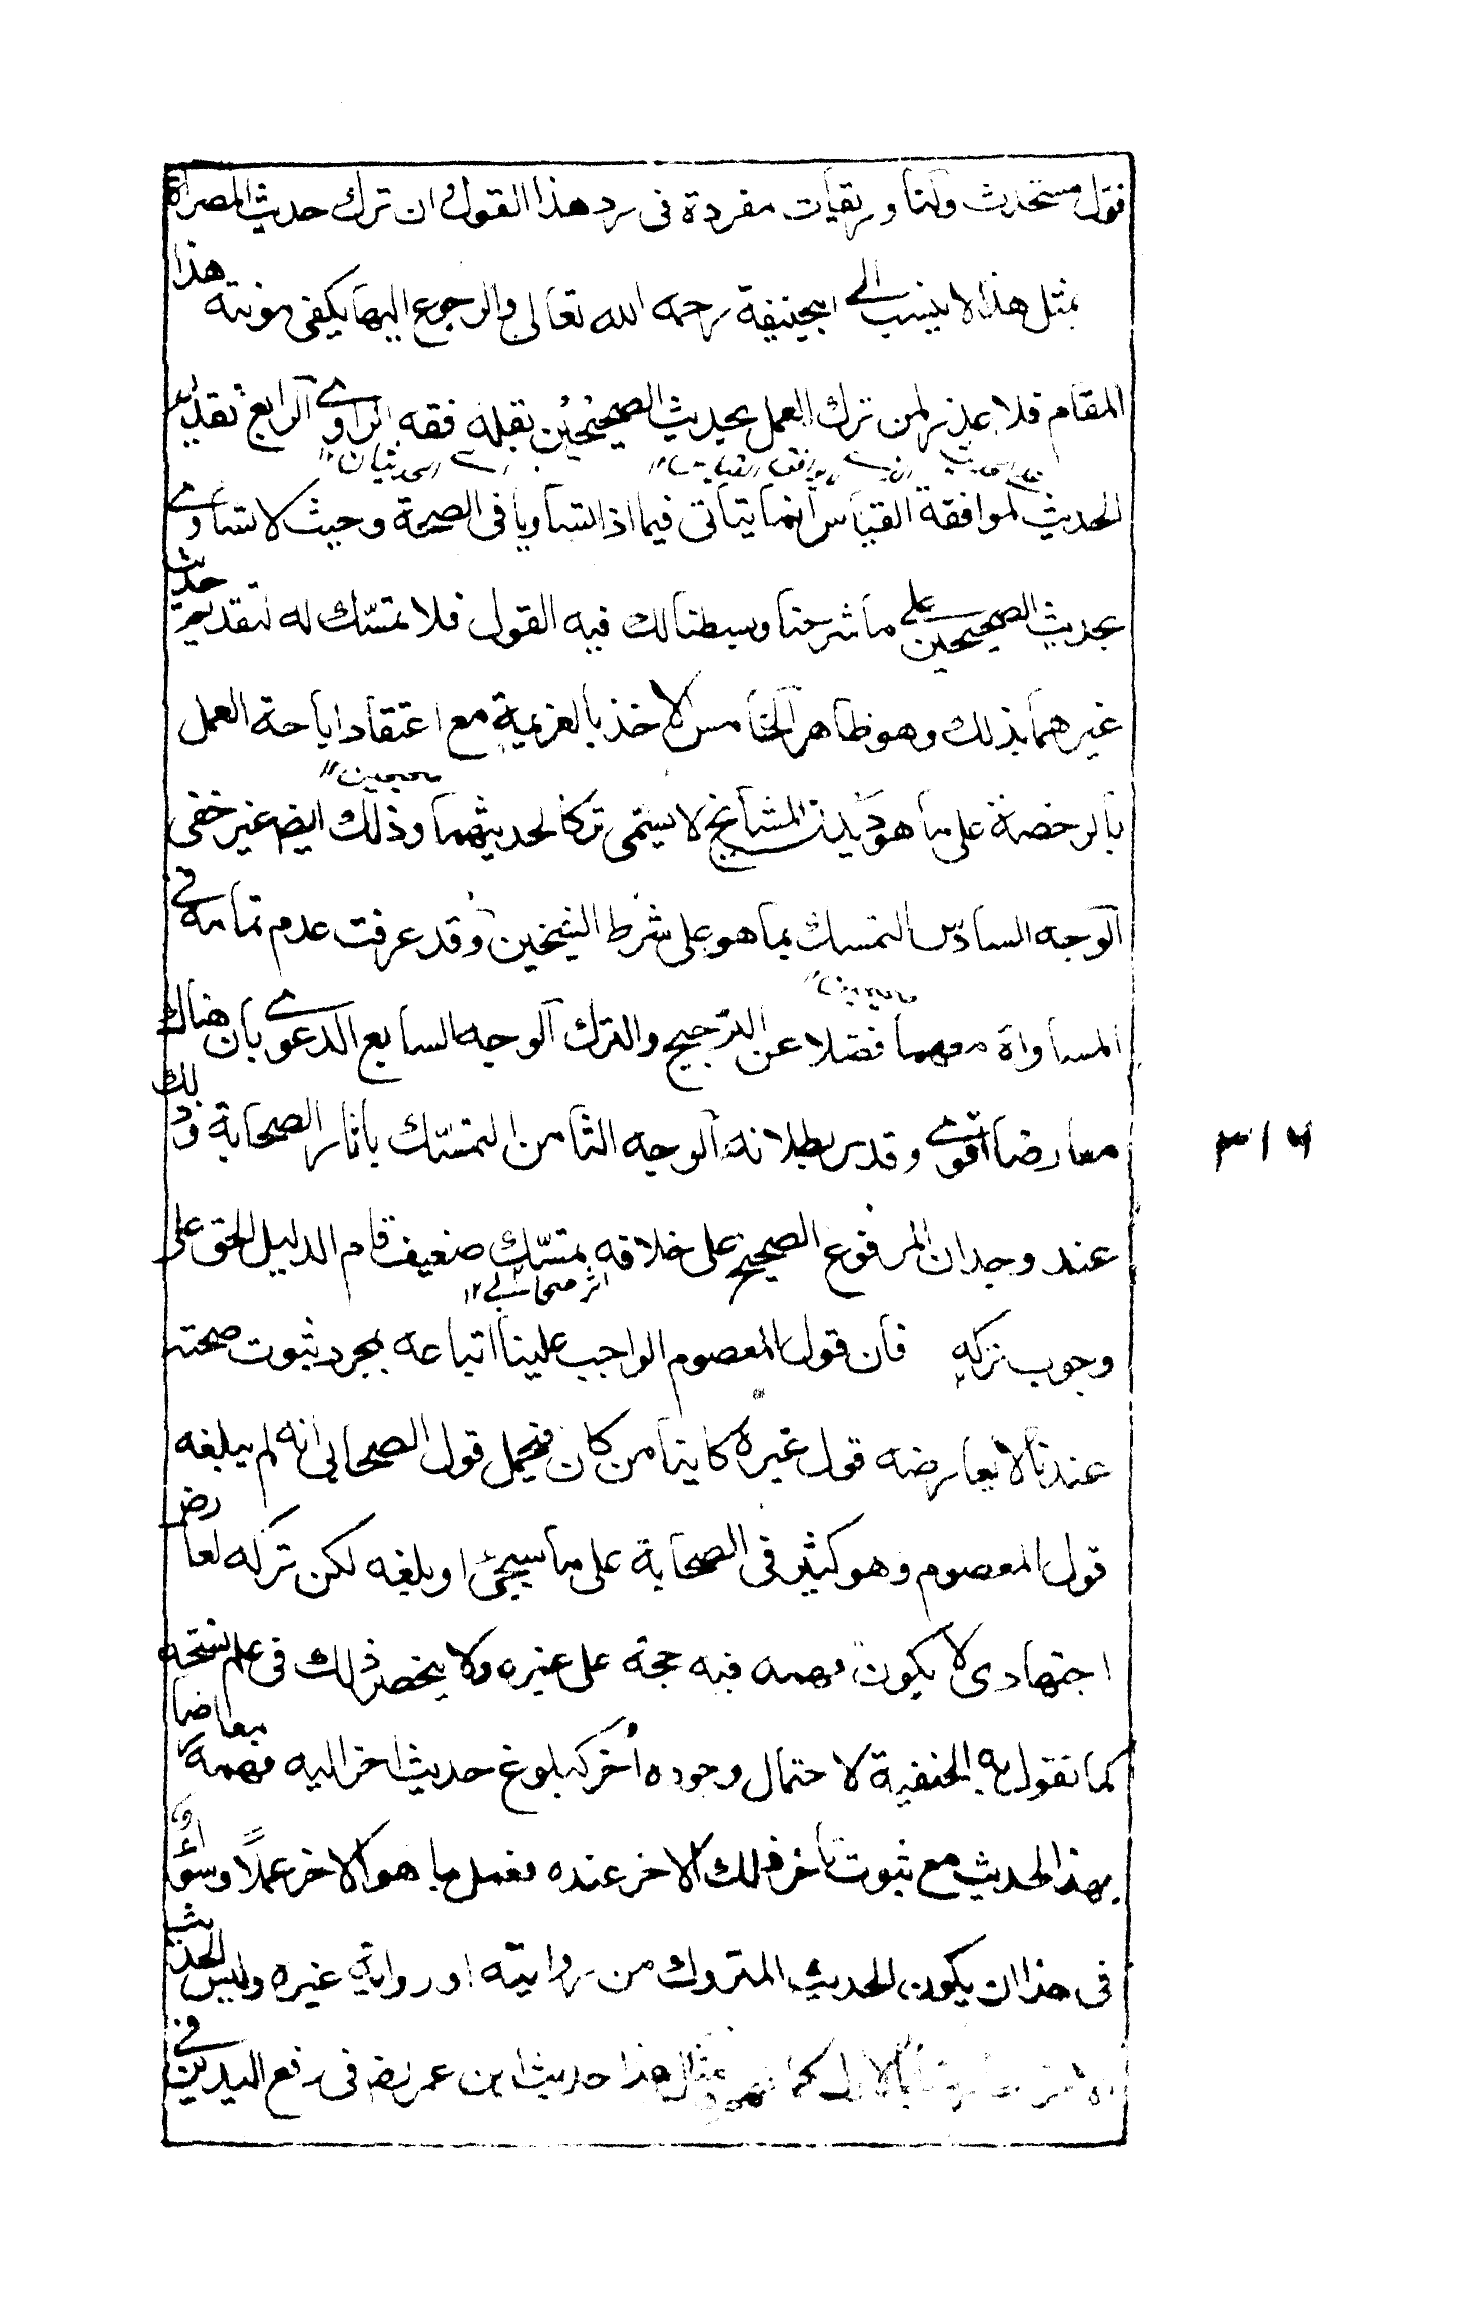 فقول مستحدث ولنا وريقات مفردة فى رد هذا القول وان ترك حديث المصراة
بمثل هذا لا ينسب الى ابيحنيفة رحمه الله تعالى والرجوع اليها يكفى مونته هذا
المقام فلا عذر لمن ترك العمل بحديث الصحيحين بقلة فقه الراوى الرابع تقديم
اى الحديثان ١٢
الحديث لموافقة القياس انما يتاتى فيما اذا تساويا فى الصحة وحيث لا تساوى
بحديث الصحيحين على ما شرحنا وبسطنا لك فيه القول فلا تمسك له لتقديم حديث
غيرهما بذلك وهو ظاهر الخامس الاخذ بالعزيمة مع اعتقاد اباحة العمل
صحيحين ١٢
بالرخصة على ما هو ديدن المشائخ لا يسمى تركا لحديثهما وذلك ايض غير خفى
الوجه السادس التمسك بما هو على شرط الشيخين وقد عرفت عدم تمامه فى
صحيحين ١٢
المساواة معهما فضلا عن الترجيح والترك الوجه السابع الدعوى بان هناك
معارضا اقوى وقد مر بطلانه الوجه الثامن التمسك باثار الصحابة وذلك
٣١٦
عند وجدان المرفوع الصحيح على خلافه تمسك ضعيف قام الدليل الحق على
اثر صحابى ١٢
وجوب تركه فان قول المعصوم الواجب علينا اتباعه بمجرد ثبوت صحته
عندنا لا يعارضه قول غيره كاينا من كان فيحمل قول الصحابى انه لم يبلغه
قول المعصوم وهو كثير فى الصحابة على ما سيجئ او بلغه لكن تركه لعارض
اجتهادى لا يكون فهمه فيه حجة على غيره ولا ينحصر ذلك فى علم نسخه
كما تقول به الحنفية لاحتمال وجوه أخر كبلوغ حديث اخر اليه فهمه معارضا
بهذا الحديث مع ثبوت تأخر ذلك الاخر عنده فعمل بما هو الاخر عملا وسواء
فى هذا ان يكون الحديث المتروك من روايته او رواية غيره وليس الحديث
مثال هذا حديث ابن عمر رض فى رفع اليدين فى